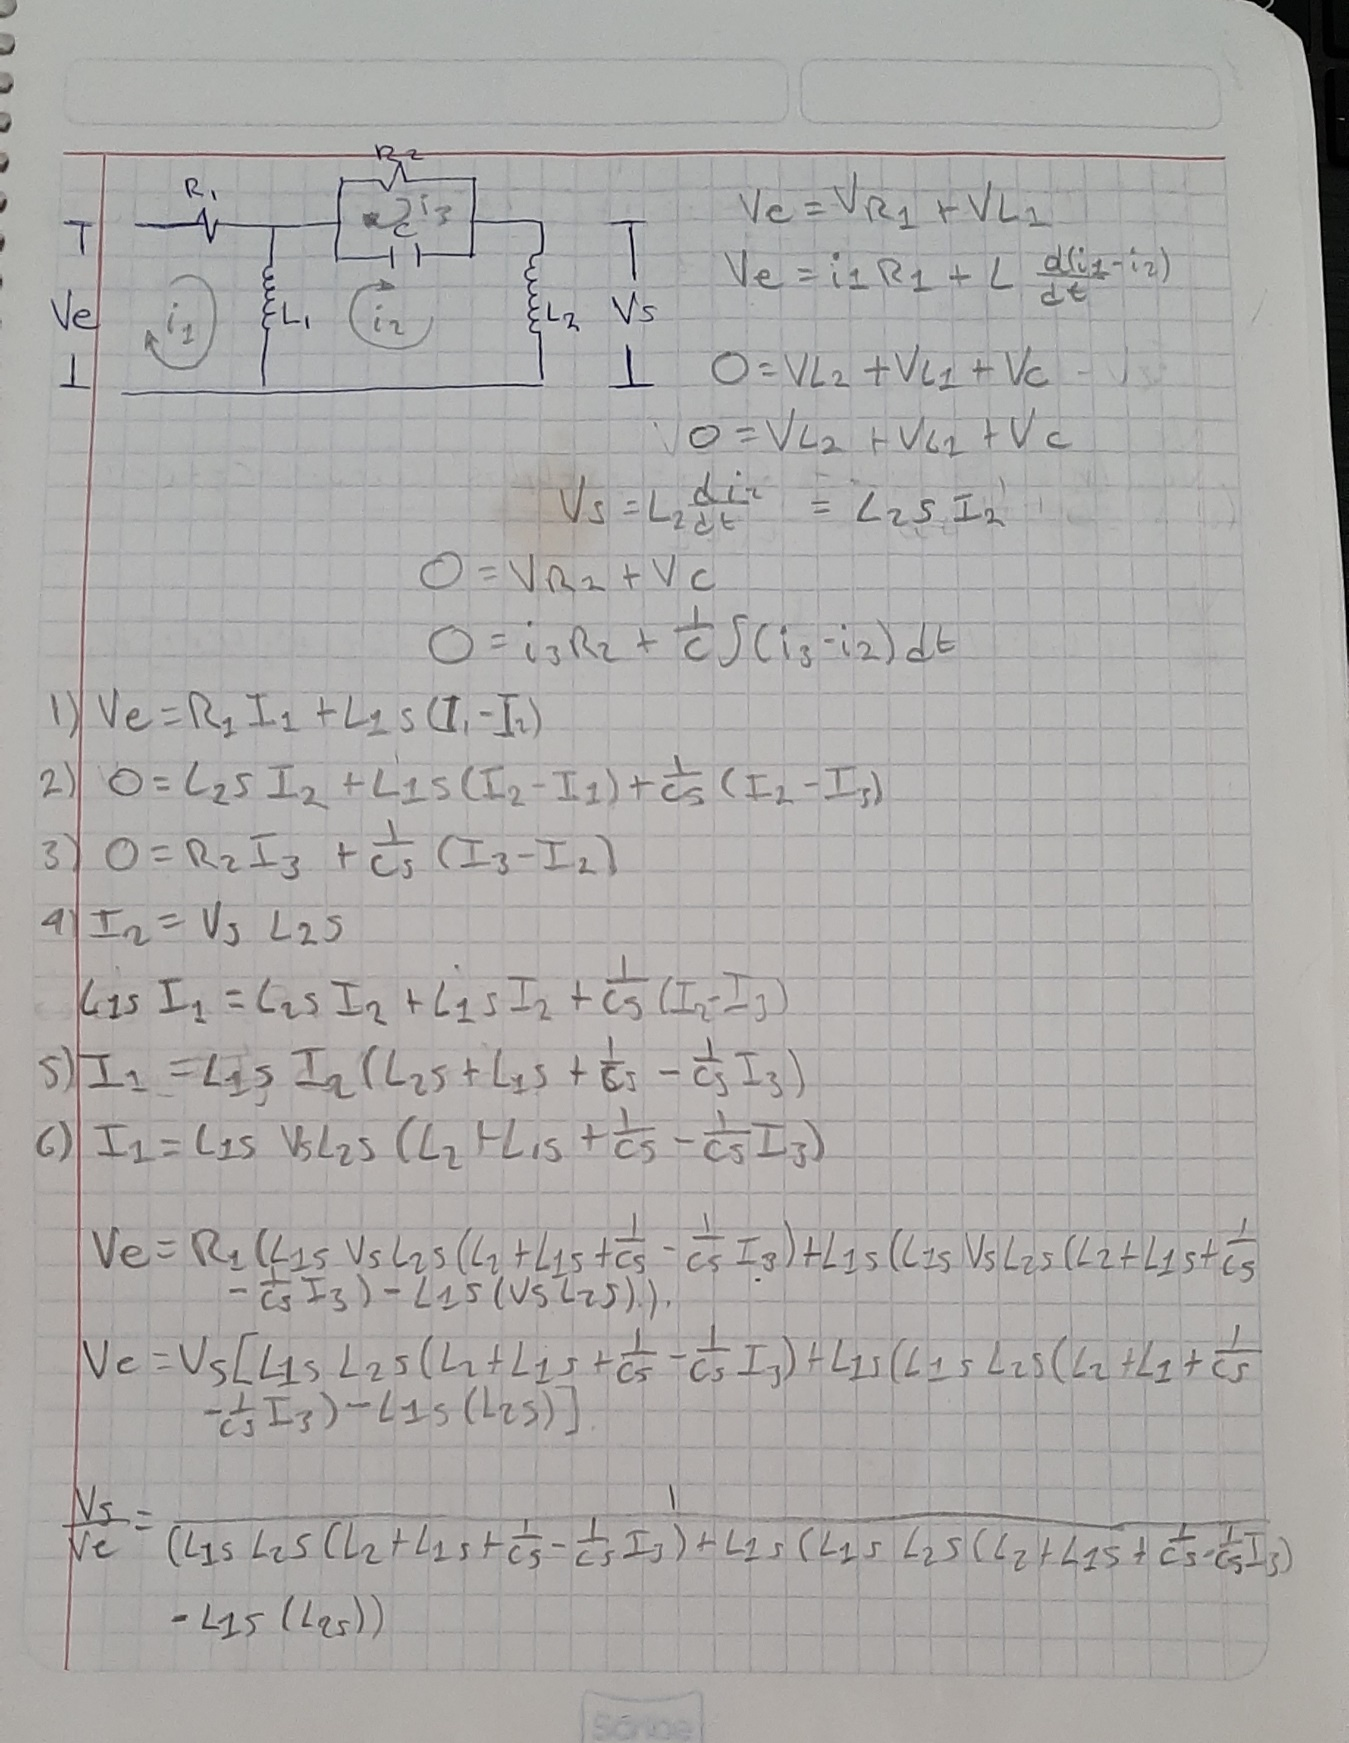 R₂
R₁
i₃
C
Ve
i₁
L₁
i₂
L₂
Vs
Ve = VR₁ + VL₁
Ve = i₁R₁ + L d(i₁-i₂)/dt
0 = VL₂ + VL₁ + Vc
0 = VL₂ + VL₁ + Vc
Vs = L₂ di₂/dt = L₂s I₂
0 = VR₂ + Vc
0 = i₃R₂ + 1/C ∫(i₃-i₂)dt
1) Ve = R₁I₁ + L₁s(I₁-I₂)
2) 0 = L₂s I₂ + L₁s(I₂-I₁) + 1/Cs (I₂-I₃)
3) 0 = R₂I₃ + 1/Cs (I₃-I₂)
4) I₂ = Vs L₂s
L₁s I₁ = L₂s I₂ + L₁s I₂ + 1/Cs (I₂-I₃)
5) I₁ = L₁s I₂(L₂s + L₁s + 1/Cs - 1/Cs I₃)
6) I₁ = L₁s VsL₂s (L₂ + L₁s + 1/Cs - 1/Cs I₃)
Ve = R₁(L₁s VsL₂s(L₂+L₁s+1/Cs - 1/Cs I₃)+L₁s(L₁s VsL₂s(L₂+L₁s+1/Cs
- 1/Cs I₃) - L₁s(VsL₂s)).
Ve = Vs[L₁s L₂s(L₂+L₁s+1/Cs - 1/Cs I₃)+L₁s(L₁s L₂s(L₂+L₁+1/Cs
- 1/Cs I₃) - L₁s(L₂s)]
Vs/Ve = 1/(L₁s L₂s(L₂+L₁s+1/Cs - 1/Cs I₃)+L₁s(L₁s L₂s(L₂+L₁s+1/Cs - 1/Cs I₃)
- L₁s(L₂s))
Scribe